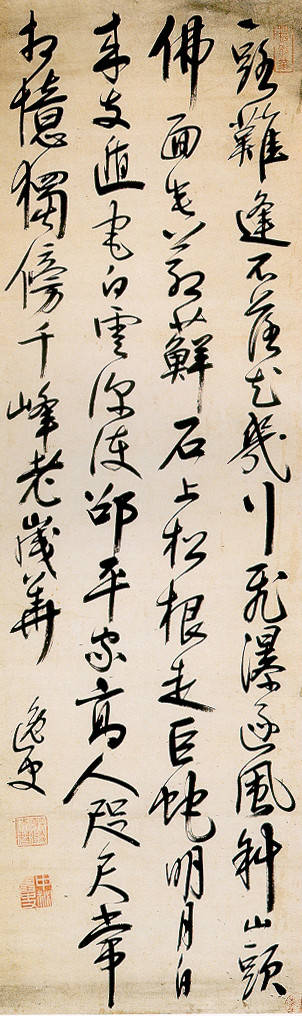 一路難逢不落花幾行飛瀑逐風斜山頭
佛面蒼蘚石上松根走巨蛇明月自
來支遁宅白雲深邵平家高人咫尺常
相憶獨傍千峰老歲華
逸史